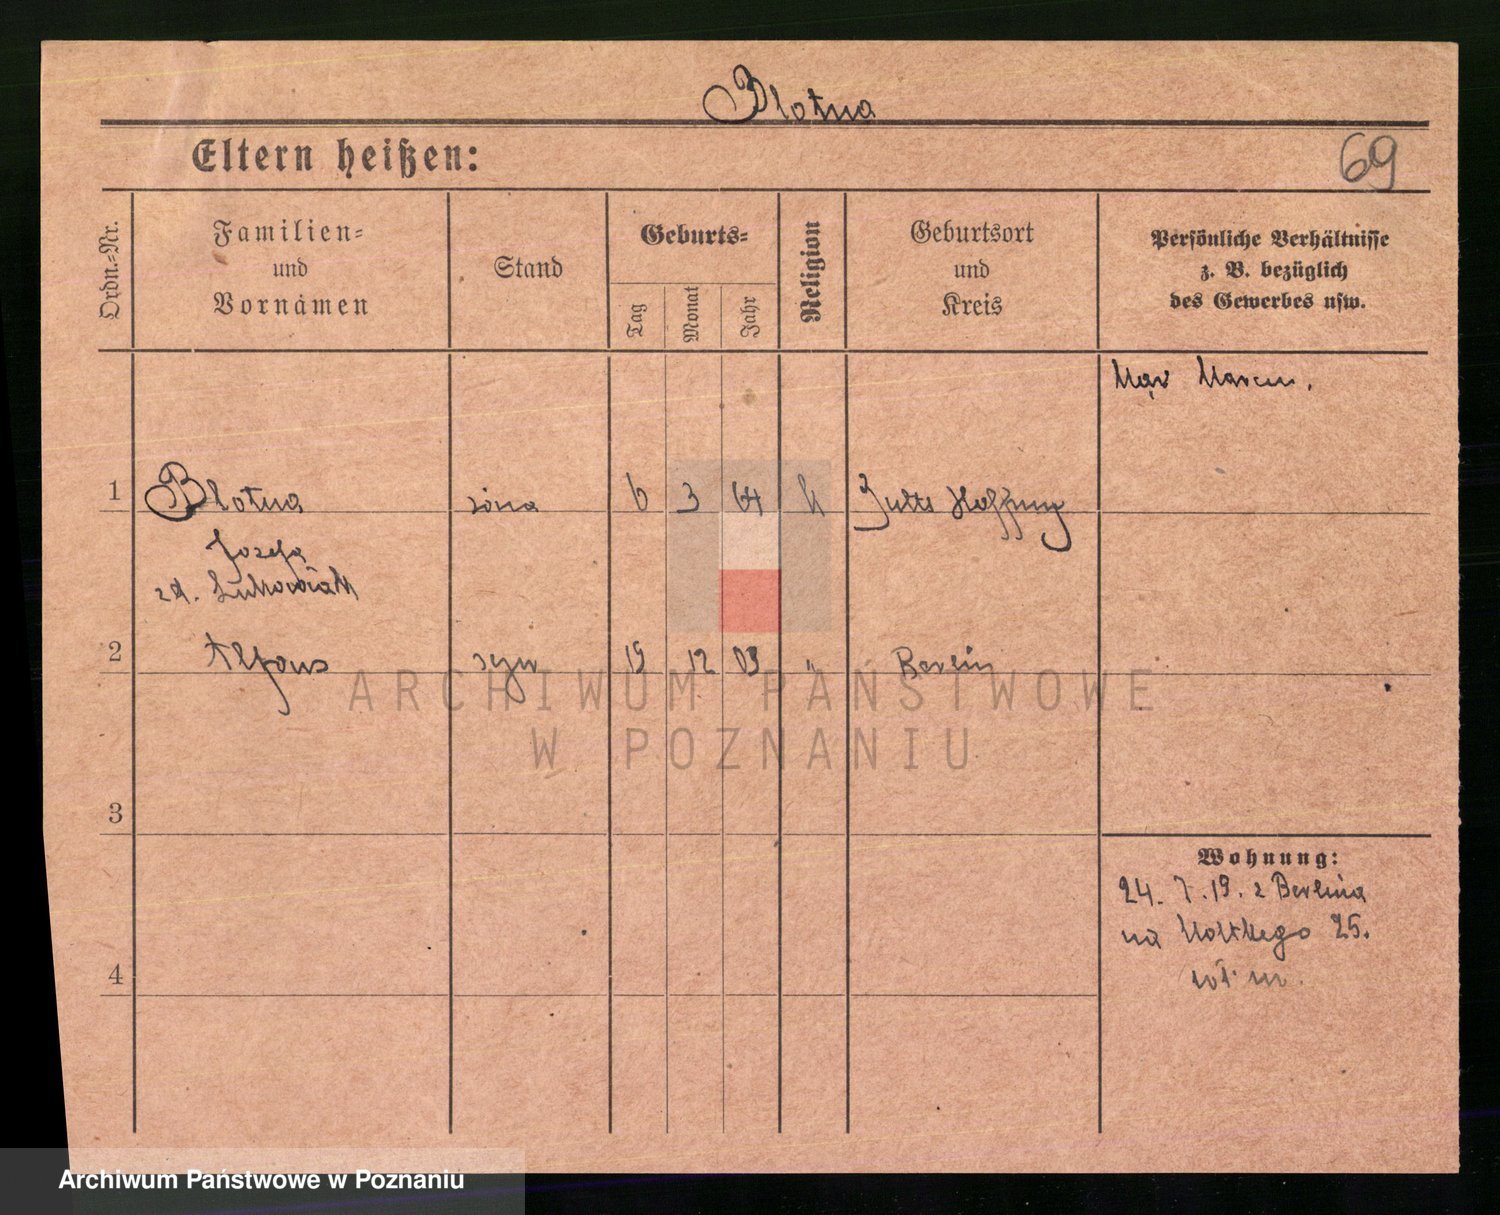 Blotna
Eltern heißen:
69
Ordn.-Nr.
Familien-
und
Vornamen
Stand
Geburts-
Tag
Monat
Jahr
Religion
Geburtsort
und
Kreis
Persönliche Verhältnisse
z. B. bezüglich
des Gewerbes usw.
Mąż Marcin.
1 Blotna żona 6 3 64 k Hoffnung
Józefa
zd. Lukowiak
2 Alfons syn 19 12 03 " Berlin
ARCHIWUM PAŃSTWOWE
W POZNANIU
3
4
Wohnung:
24. 7. 19. z Berlina
na Moltkego 25.
Archiwum Państwowe w Poznaniu